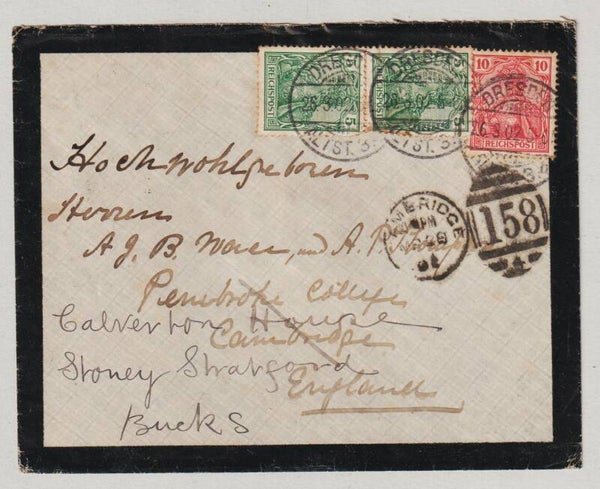 10
REICHSPOST
5
REICHSPOST
5
DRESDEN
26.3.02
ALTST. 3
CAMBRIDGE
PM
158
Hochwohlgeboren
Herren
A. J. B. Wace, and A. P.
Pembroke College
Cambridge
England
Calverton House
Stoney Stratford
Bucks